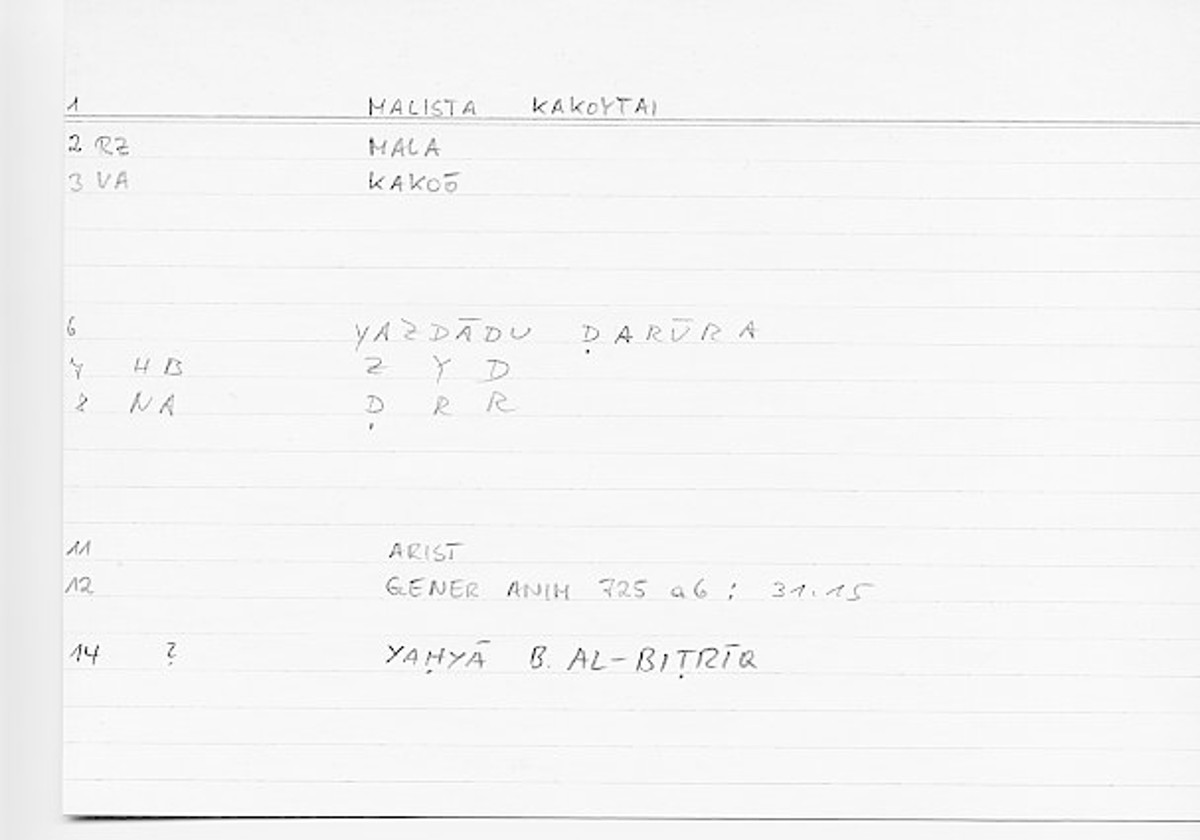 1 MALISTA KAKOYTAI
2 RZ MALA
3 VA KAKOŌ
6 YAZDĀDU ḌARŪRA
7 HB Z Y D
8 NA Ḍ R R
11 ARIST
12 GENER ANIM 725 a6 : 31.15
14 ? YAḤYĀ B. AL-BIṬRĪQ